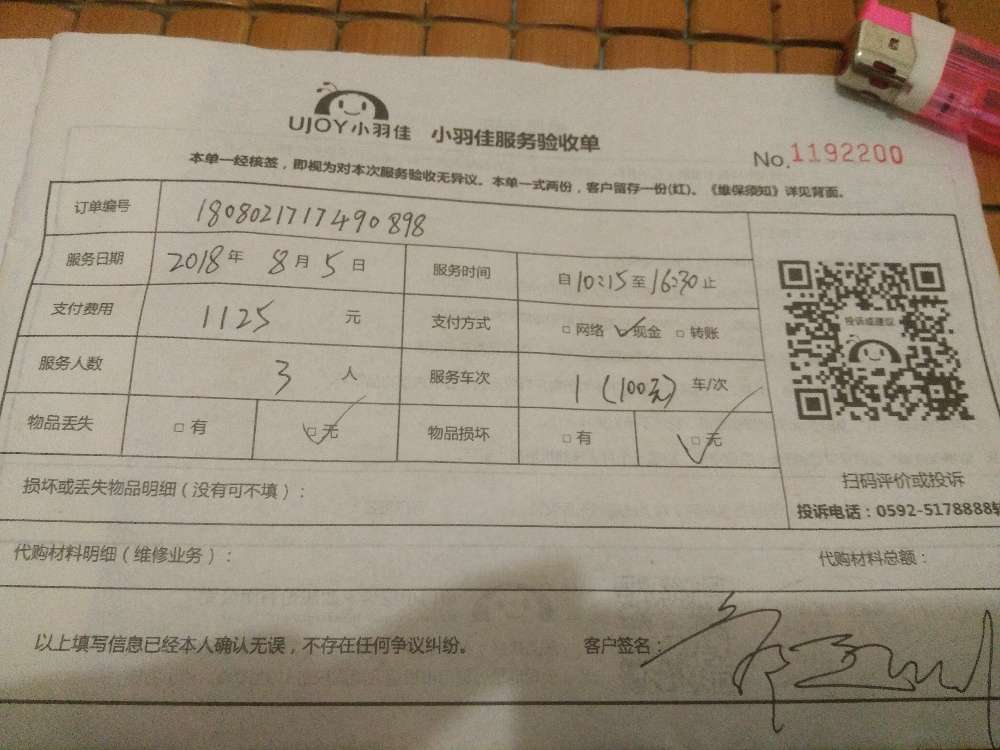 UJOY小羽佳 小羽佳服务验收单
No.1192200
本单一经核签，即视为对本次服务验收无异议。本单一式两份，客户留存一份(红)。《维保须知》详见背面。
订单编号 180802171749 0 898
服务日期 2018年 8月 5日 服务时间 自10:15至16:30止
支付费用 1125 元 支付方式 □网络 ☑现金 □转账
服务人数 3 人 服务车次 1 (100元) 车/次
物品丢失 □有 ☑无 物品损坏 □有 ☑无
投诉或建议
扫码评价或投诉
投诉电话：0592-5178888转
损坏或丢失物品明细（没有可不填）：
代购材料明细（维修业务）： 代购材料总额：
以上填写信息已经本人确认无误，不存在任何争议纠纷。 客户签名：